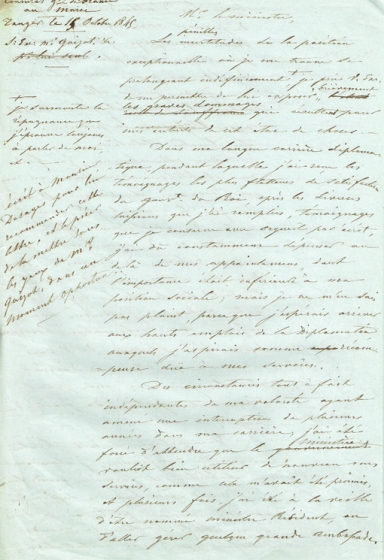 au Maroc
Tanger le 15 Octobre 1845
à S. Exc. Mr. Guizot, &a
pour lui seul.
Mr. le ministre,
pénibles
Les incertitudes de la position
exceptionnelle où je me trouve se
prolongeant indéfiniment,
de me permettre de lui exposer brièvement
les graves dommages
qui résultent pour
mes intérêts de cet état de choses.
je surmonte la
répugnance que
j'éprouve toujours
à parler de moi
Dans ma longue carrière diploma-
tique, pendant laquelle j'ai reçu les
témoignages les plus flatteurs de satisfaction
du gouvt. du Roi, après les diverses
missions que j'ai remplies, témoignages
que je conserve avec orgueil par écrit,
j'ai dû constamment dépenser au
delà de mes appointemens, dont
l'importance était inférieure à ma
position sociale; mais je ne me suis
pas plaint, parce que j'espérais arriver
aux hauts emplois de la Diplomatie
auxquels j'aspirais comme récom-
pense due à mes services.
Ecrit à Monsieur
Desages pour lui
recommander cette
lettre, et le prier
de la mettre sous
les yeux de Mr.
Guizot, dans un
moment opportun
Des circonstances tout à fait
indépendantes de ma volonté ayant
amené une interruption de plusieurs
années dans ma carrière, j'ai été
forcé d'attendre que le ministère
voulût bien utiliser de nouveau mes
services, comme cela m'avait été promis,
et plusieurs fois, j'ai été à la veille
d'être nommé ministre Résident, ou
d'aller gérer quelque grande ambassade.